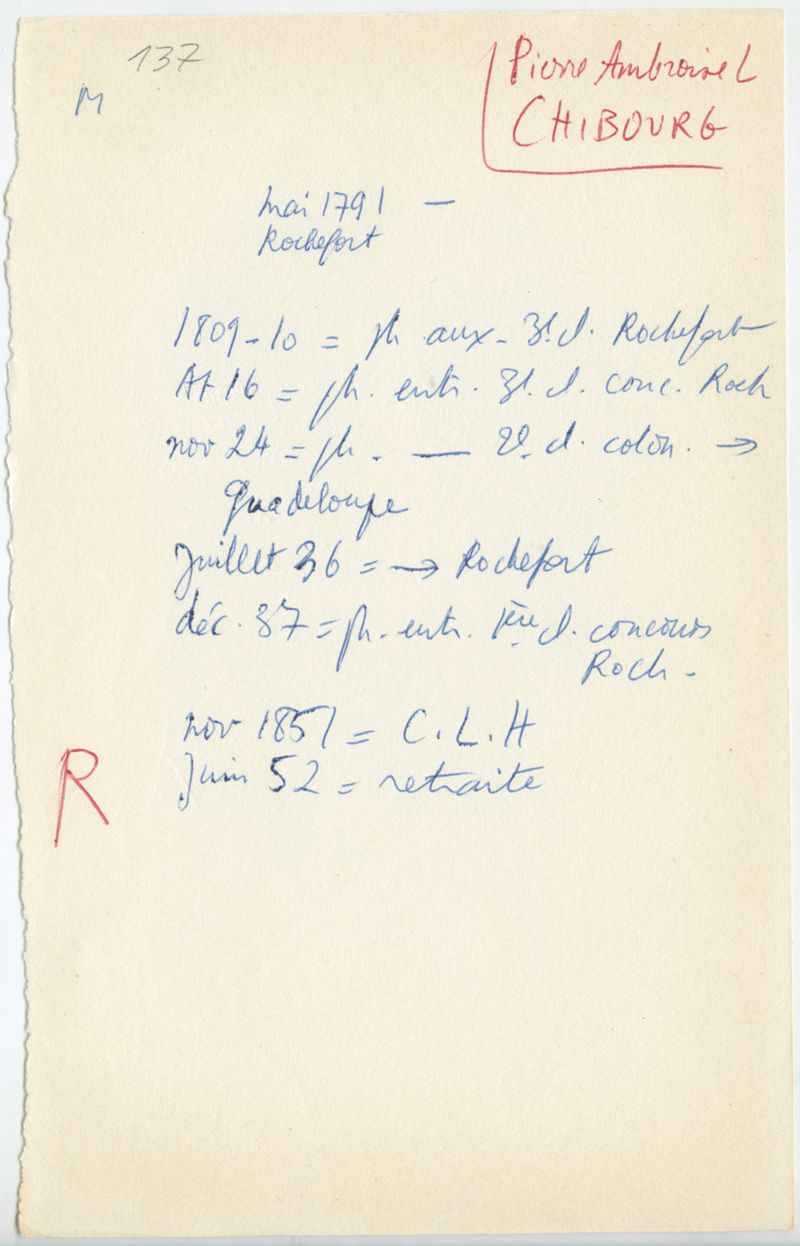 137
M
Pierre Ambroise L
CHIBOURG
mai 1791 —
Rochefort
1809-10 = ph aux - 3e cl. Rochefort
At 16 = ph. entr. 3e cl. conc. Roch
nov 24 = ph. — 2e. cl. colon. →
Guadeloupe
Juillet 36 = → Rochefort
déc. 37 = ph. entr. 1ère cl. concours
Roch -
nov 1851 = C.L.H
Juin 52 = retraite
R